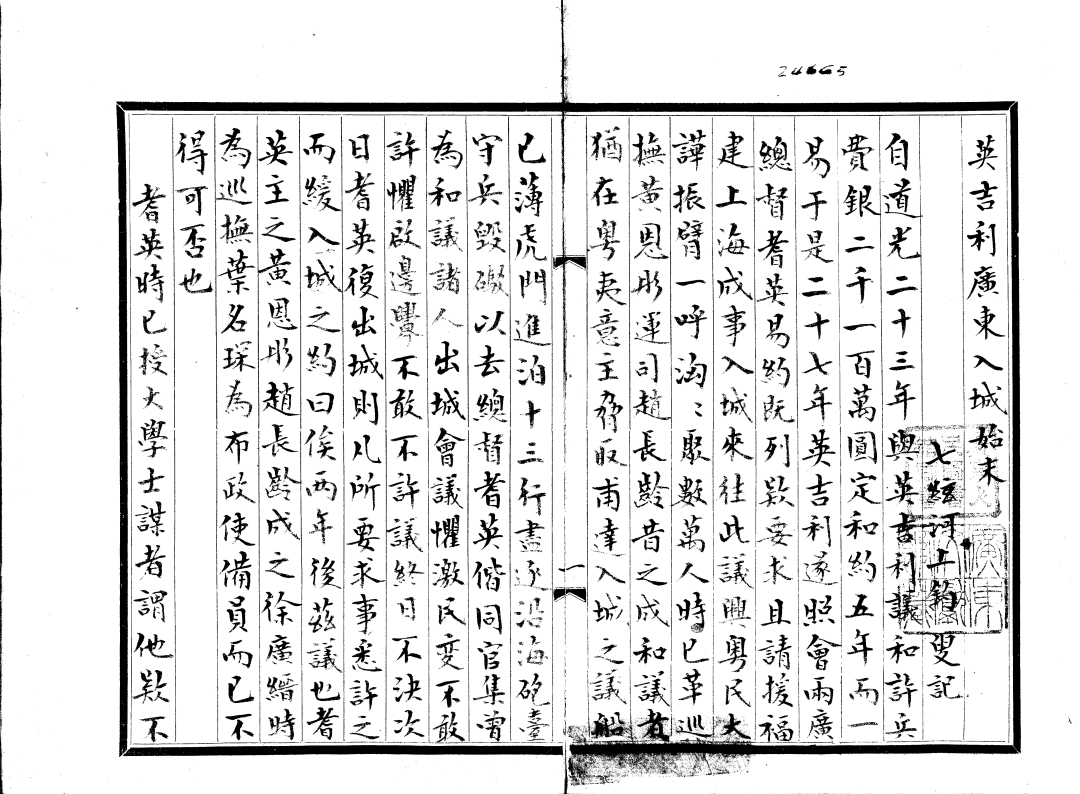 24665
英吉利廣東入城始末
七絃河上釣叟記
自道光二十三年與英吉利議和許兵
費銀二千一百萬圓定和約五年而一
易于是二十七年英吉利遂照會兩廣
總督耆英易約既列欵要求且請援福
建上海成事入城來往此議興粵民大
譁振臂一呼洶〻聚數萬人時已革巡
撫黃恩彤運司趙長齡昔之成和議者
猶在粵夷意主脅取甫達入城之議船
一
已薄虎門進泊十三行盡逐沿海砲臺
守兵毀礮以去總督耆英偕同官集嘗
為和議諸人出城會議懼激民變不敢
許懼啟邊釁不敢不許議終日不決次
日耆英復出城則凡所要求事悉許之
而緩入城之約曰俟兩年後茲議也耆
英主之黃恩彤趙長齡成之徐廣縉時
為巡撫葉名琛為布政使備員而已不
得可否也
耆英時已授大學士謀者謂他欵不